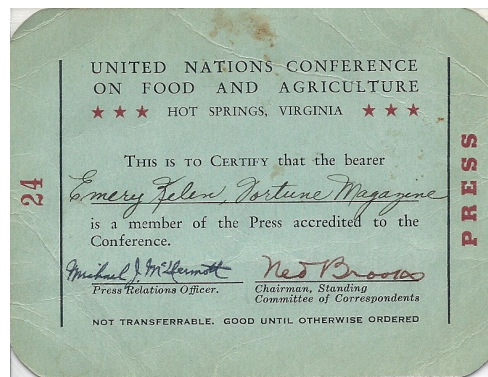 UNITED NATIONS CONFERENCE
ON FOOD AND AGRICULTURE
★ ★ ★ HOT SPRINGS, VIRGINIA ★ ★ ★
THIS IS TO CERTIFY that the bearer
Emery Kelen, Fortune Magazine
is a member of the Press accredited to the
Conference.
Michael J. McDermott
Press Relations Officer.
Ned Brooks
Chairman, Standing
Committee of Correspondents
NOT TRANSFERRABLE. GOOD UNTIL OTHERWISE ORDERED
24
PRESS